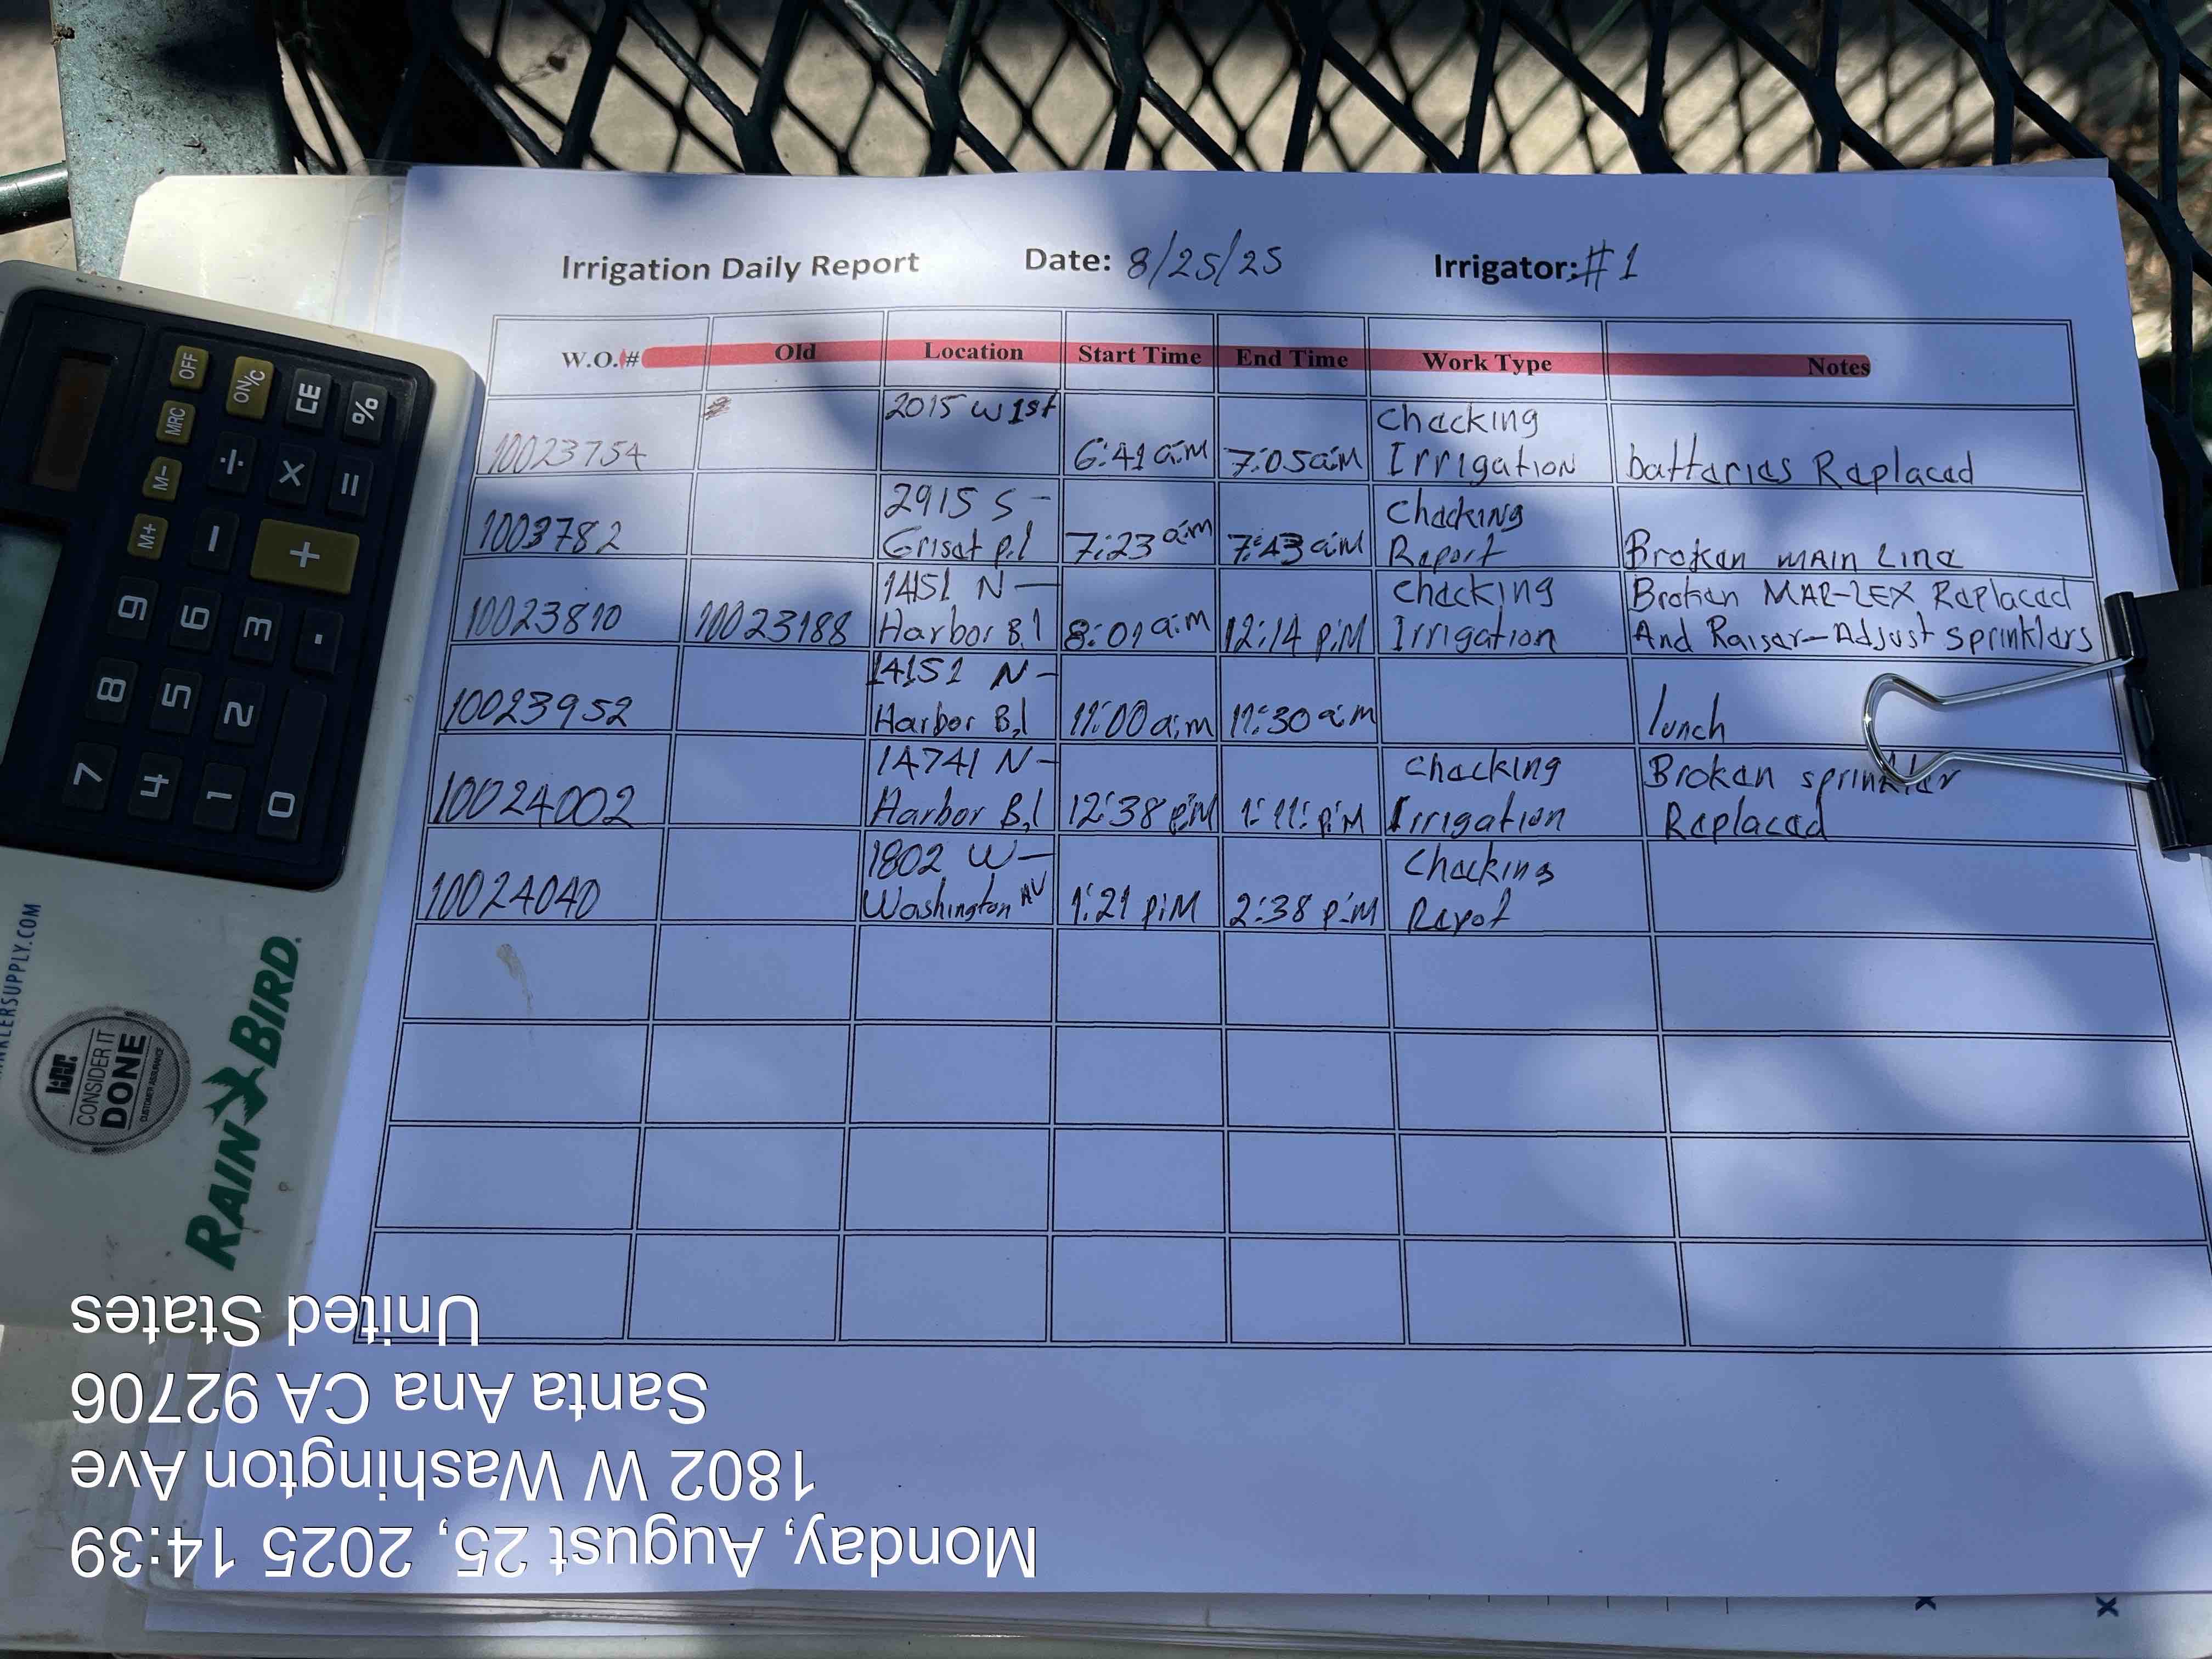 Irrigation Daily Report Date: 8/25/25 Irrigator: #1
W.O.# Old Location Start Time End Time Work Type Notes
10023754 2015 W 1st 6:41 a.m 7:05 a.m Chacking Irrigation battarias Raplacad
1003782 2915 S - Grisat p.l 7:23 a.m 7:43 a.m Chacking Raport Brokan MAIN Lina
10023810 10023188 14151 N — Harbor B.l 8:01 a.m 12:14 p.M Chacking Irrigation Brokan MAR-LEX Raplacad And Raisar-Adjust sprinklars
10023952 14151 N - Harbor B.l 11:00 a.m 11:30 a.m lunch
10024002 14741 N - Harbor B.l 12:38 p.M 1:11 p.M Chacking Irrigation Brokan sprinklar Raplacad
10024040 1802 W — Washington AV 1:21 p.M 2:38 p.M Chacking Rapot
OFF ON/C CE %
MRC ÷ × =
M- − +
M+
9 6 3 .
8 5 2
7 4 1 0
NKLERSUPPLY.COM
CONSIDER IT
DONE
CUSTOMER ASSURANCE
RAIN BIRD
Monday, August 25, 2025 14:39
1802 W Washington Ave
Santa Ana CA 92706
United States
X
X